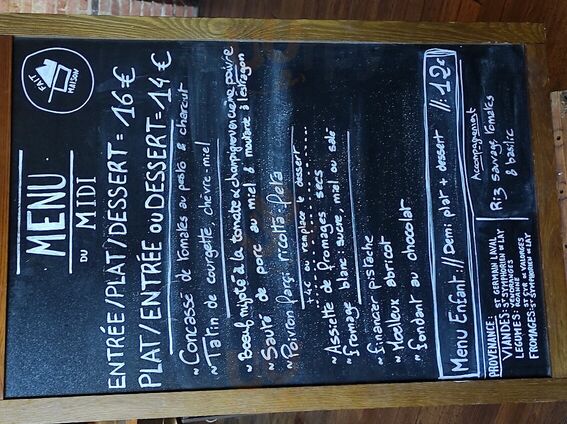 FAIT
MAISON
MENU
DU
MIDI
ENTRÉE/PLAT/DESSERT = 16€
PLAT/ENTRÉE OU DESSERT = 14€
~ Concassé de tomates au pesto & charcut
~ Tatin de courgette, chèvre-miel
~ Boeuf mijoté à la tomate & champignons crème poivre
~ Sauté de porc au miel & moutarde à l'estragon
~ Poivron farçi ricotta-feta
+ 4€ ou remplace le dessert
~ Assiette de fromages secs
~ fromage blanc sucre, miel ou salé
~ financier pistache
~ Moelleux abricot
~ fondant au chocolat
Menu Enfant : // Demi plat + dessert //: 12€
PROVENANCE:
VIANDES: ST GERMAIN LAVAL
ST SYMPHORIEN DE LAY
LEGUMES: VENDRANGES
ROANNE
FROMAGES: ST CYR DE VALORGES
ST SYMPHORIEN DE LAY
Accompagnement
Riz sauvage tomates
& basilic